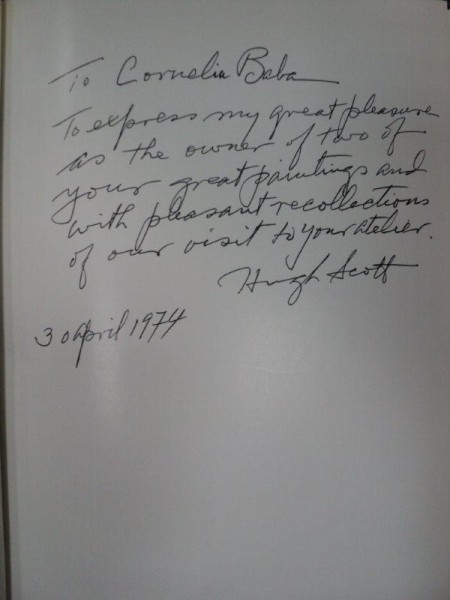 To Corneliu Baba
To express my great pleasure
as the owner of two of
your great paintings and
with pleasant recollections
of our visit to your atelier.
Hugh Scott
30 April 1974